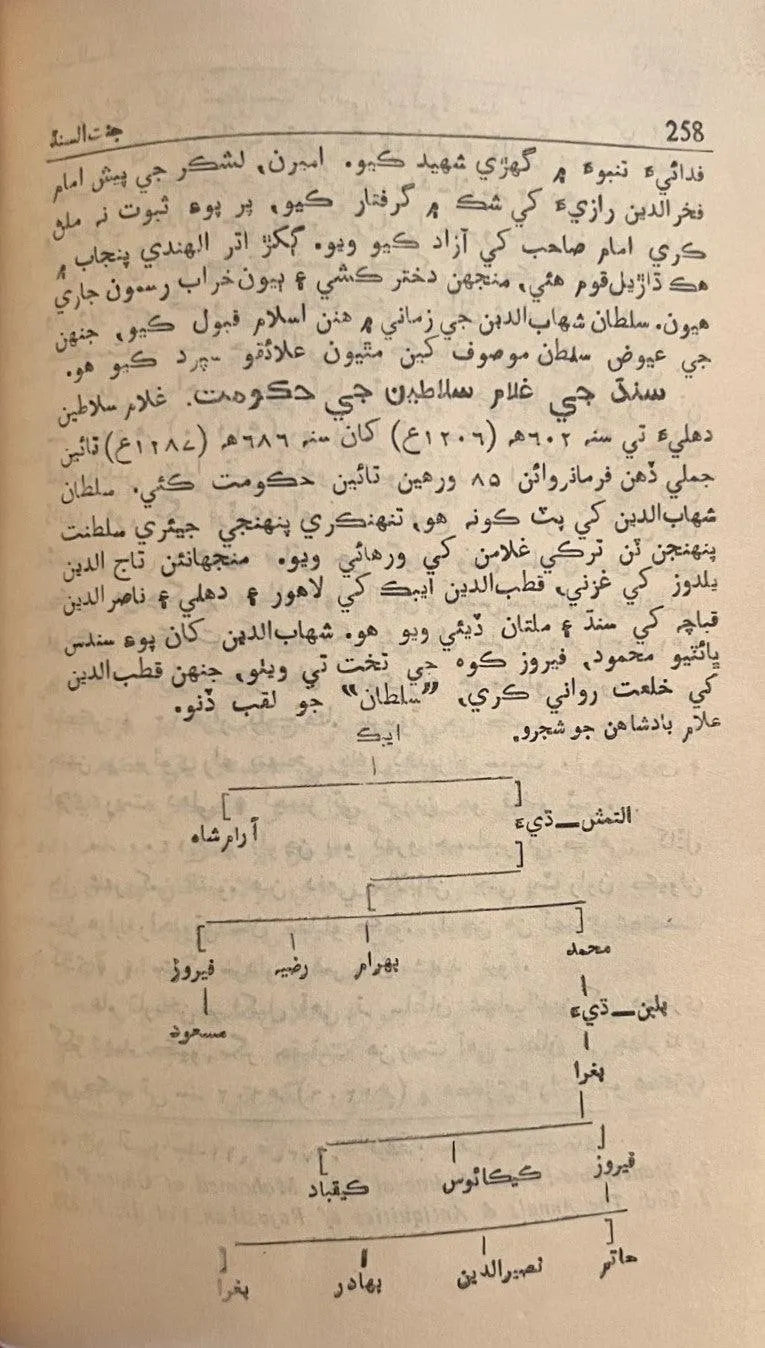 258
جنت السنڌ
فدائيءَ تنبوءَ ۾ گهڙي شهيد ڪيو. اميرن، لشڪر جي پيش امام
فخرالدين رازيءَ کي شڪ ۾ گرفتار ڪيو، پر پوءِ ثبوت نہ ملڻ
ڪري امام صاحب کي آزاد ڪيو ويو. گکڙ اتر الهندي پنجاب ۾
هڪ ڌاڙيل قوم هئي، منجهن دختر ڪشي ۽ ٻيون خراب رسمون جاري
هيون. سلطان شهاب‌الدين جي زماني ۾ هنن اسلام قبول ڪيو، جنهن
جي عيوض سلطان موصوف کين مٿيون علائقو سپرد ڪيو هو.
سنڌ جي غلام سلاطين جي حڪومت. غلام سلاطين
دهليءَ تي سنہ ٦٠٢ھ (١٢٠٦ع) کان سنہ ٦٨٦ھ (١٢٨٧ع) تائين
جملي ڏهن فرمانروائن ٨٥ ورهين تائين حڪومت ڪئي. سلطان
شهاب‌الدين کي پٽ ڪونہ هو، تنهنڪري پنهنجي جيئري سلطنت
پنهنجن ٽن ترڪي غلامن کي ورهائي ويو. منجهانئن تاج الدين
يلدوز کي غزني، قطب‌الدين ايبڪ کي لاهور ۽ دهلي ۽ ناصرالدين
قباچہ کي سنڌ ۽ ملتان ڏيئي ويو هو. شهاب‌الدين کان پوءِ سندس
ڀائٽيو محمود، فيروز ڪوه جي تخت تي ويٺو، جنهن قطب‌الدين
کي خلعت رواني ڪري، ”سلطان“ جو لقب ڏنو.
غلام بادشاهن جو شجرو.
ايبڪ
التمش—ڌيءَ آرام شاه
محمد بهرام رضيہ فيروز
بلبن—ڌيءَ مسعود
بغرا
فيروز ڪيڪائوس ڪيقباد
حاتم نصيرالدين بهادر بغرا